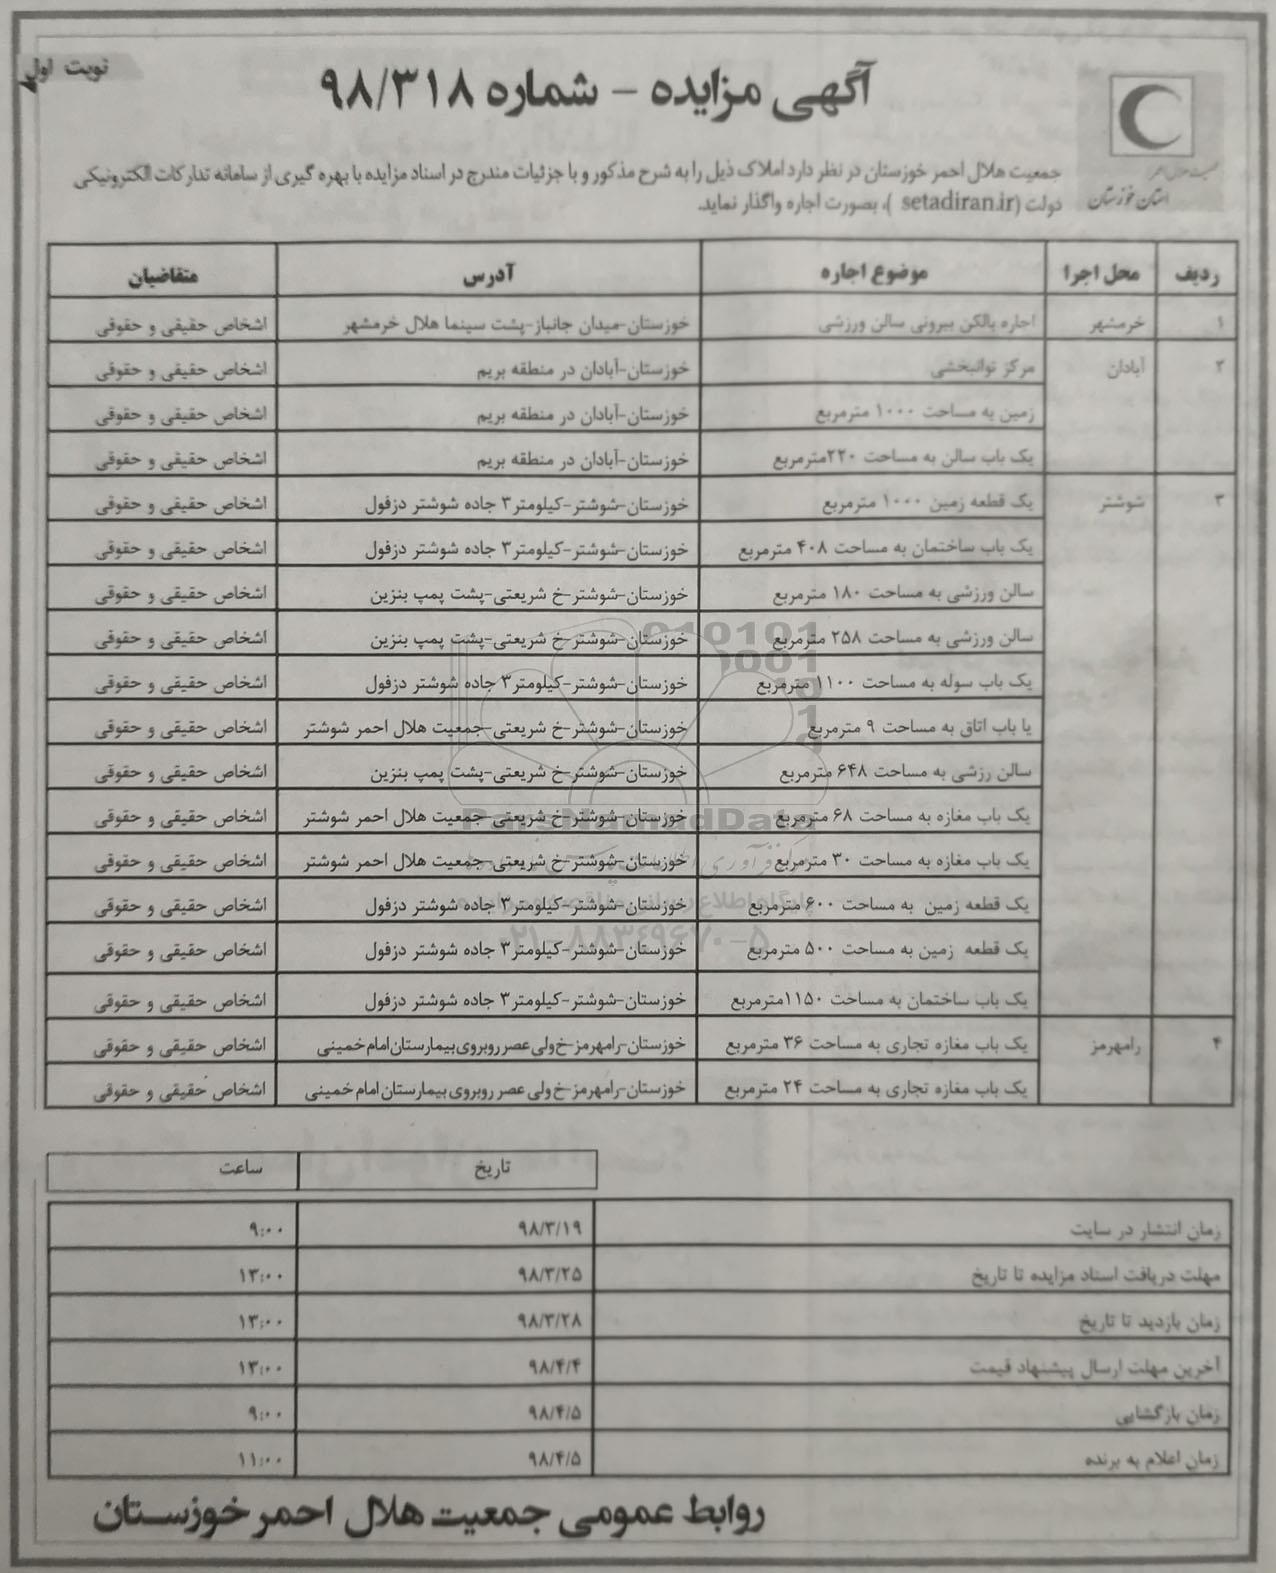 نوبت اول
آگهی مزایده - شماره ۹۸/۳۱۸
جمعیت هلال احمر
استان خوزستان
جمعیت هلال احمر خوزستان در نظر دارد املاک ذیل را به شرح مذکور و با جزئیات مندرج در اسناد مزایده با بهره گیری از سامانه تدارکات الکترونیکی
دولت (setadiran.ir )، بصورت اجاره واگذار نماید.
ردیف محل اجرا موضوع اجاره آدرس متقاضیان
۱ خرمشهر اجاره بالکن بیرونی سالن ورزشی خوزستان-میدان جانباز-پشت سینما هلال خرمشهر اشخاص حقیقی و حقوقی
۲ آبادان مرکز توانبخشی خوزستان-آبادان در منطقه بریم اشخاص حقیقی و حقوقی
زمین به مساحت ۱۰۰۰ مترمربع خوزستان-آبادان در منطقه بریم اشخاص حقیقی و حقوقی
یک باب سالن به مساحت ۲۲۰مترمربع خوزستان-آبادان در منطقه بریم اشخاص حقیقی و حقوقی
۳ شوشتر یک قطعه زمین ۱۰۰۰ مترمربع خوزستان-شوشتر-کیلومتر۳ جاده شوشتر دزفول اشخاص حقیقی و حقوقی
یک باب ساختمان به مساحت ۴۰۸ مترمربع خوزستان-شوشتر-کیلومتر۳ جاده شوشتر دزفول اشخاص حقیقی و حقوقی
سالن ورزشی به مساحت ۱۸۰ مترمربع خوزستان-شوشتر-خ شریعتی-پشت پمپ بنزین اشخاص حقیقی و حقوقی
سالن ورزشی به مساحت ۲۵۸ مترمربع خوزستان-شوشتر-خ شریعتی-پشت پمپ بنزین اشخاص حقیقی و حقوقی
یک باب سوله به مساحت ۱۱۰۰ مترمربع خوزستان-شوشتر-کیلومتر۳ جاده شوشتر دزفول اشخاص حقیقی و حقوقی
یا باب اتاق به مساحت ۹ مترمربع خوزستان-شوشتر-خ شریعتی-جمعیت هلال احمر شوشتر اشخاص حقیقی و حقوقی
سالن رزشی به مساحت ۶۴۸ مترمربع خوزستان-شوشتر-خ شریعتی-پشت پمپ بنزین اشخاص حقیقی و حقوقی
یک باب مغازه به مساحت ۶۸ مترمربع خوزستان-شوشتر-خ شریعتی-جمعیت هلال احمر شوشتر اشخاص حقیقی و حقوقی
یک باب مغازه به مساحت ۳۰ مترمربع خوزستان-شوشتر-خ شریعتی-جمعیت هلال احمر شوشتر اشخاص حقیقی و حقوقی
یک قطعه زمین به مساحت ۶۰۰ مترمربع خوزستان-شوشتر-کیلومتر۳ جاده شوشتر دزفول اشخاص حقیقی و حقوقی
یک قطعه زمین به مساحت ۵۰۰ مترمربع خوزستان-شوشتر-کیلومتر۳ جاده شوشتر دزفول اشخاص حقیقی و حقوقی
یک باب ساختمان به مساحت ۱۱۵۰مترمربع خوزستان-شوشتر-کیلومتر۳ جاده شوشتر دزفول اشخاص حقیقی و حقوقی
۴ رامهرمز یک باب مغازه تجاری به مساحت ۳۶ مترمربع خوزستان-رامهرمز-خ ولی عصر روبروی بیمارستان امام خمینی اشخاص حقیقی و حقوقی
یک باب مغازه تجاری به مساحت ۲۴ مترمربع خوزستان-رامهرمز-خ ولی عصر روبروی بیمارستان امام خمینی اشخاص حقیقی و حقوقی
ParsNamadData
۰۲۱-۸۸۳۴۹۶۷۰-۵
تاریخ ساعت
زمان انتشار در سایت ۹۸/۳/۱۹ ۹:۰۰
مهلت دریافت اسناد مزایده تا تاریخ ۹۸/۳/۲۵ ۱۳:۰۰
زمان بازدید تا تاریخ ۹۸/۳/۲۸ ۱۳:۰۰
آخرین مهلت ارسال پیشنهاد قیمت ۹۸/۴/۴ ۱۳:۰۰
زمان بازگشایی ۹۸/۴/۵ ۹:۰۰
زمان اعلام به برنده ۹۸/۴/۵ ۱۱:۰۰
روابط عمومی جمعیت هلال احمر خوزستان